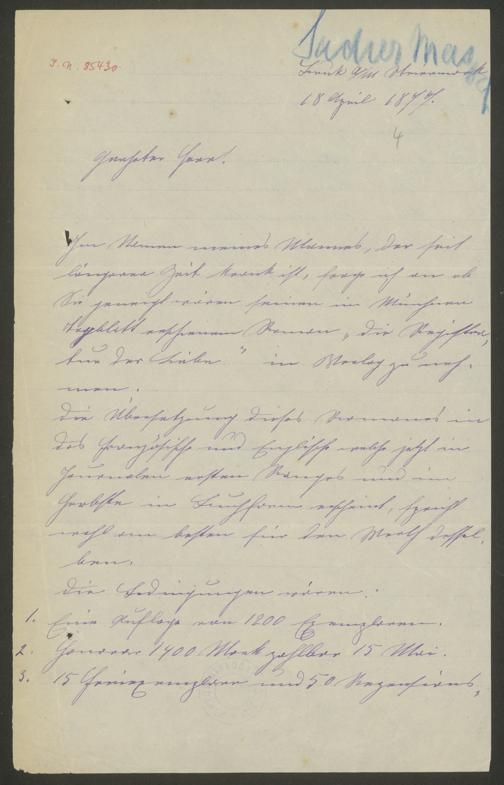 Sacher Masoch
J.N. 85430
Bruck a/M Steiermark
18 April 1877.
4
Geehrter Herr.
Im Namen meines Mannes, der seit
längerer Zeit krank ist, frage ich an ob
Sie geneigt wären seinen im Münchner
Tagblatt erschienen Roman „die
der Liebe" in Verlag zu neh-
men.
Die Übersetzung dieses Romanes in
das französische und Englische welche jetzt in
Journalen ersten Ranges und im
Herbste in Buchform erscheint, spricht
wohl am besten für den Werth dessel-
ben.
Die Bedingungen wären:
1. Eine Auflage von 1200 Exemplaren.
2. Honorar 1400 Mark zahlbar 15 Mai.
3. 15 Freiexemplare und 50 Rezensions-